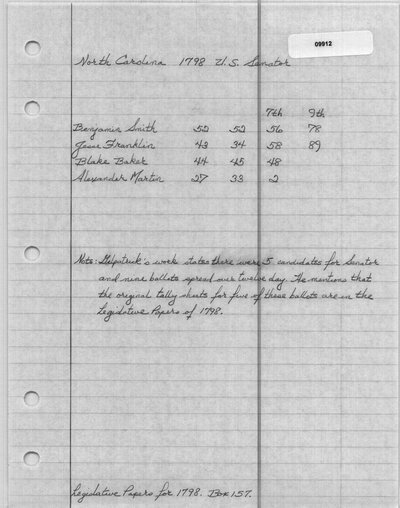 09912
North Carolina 1798 U.S. Senator
7th 9th
Benjamin Smith 52 52 56 78
Jesse Franklin 43 34 58 89
Blake Baker 44 45 48
Alexander Martin 27 33 2
Note: Gilpatrick's work states there were 5 candidates for Senator
and nine ballots spread over twelve day. He mentions that
the original tally sheets for five of these ballots are in the
Legislative Papers of 1798.
Legislative Papers for 1798. Box 157.